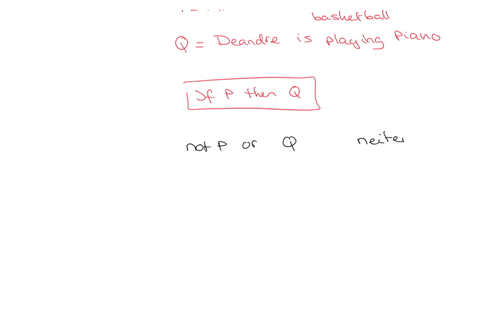 basketball
Q = Deandre is playing Piano
If P then Q
not P or Q neiter